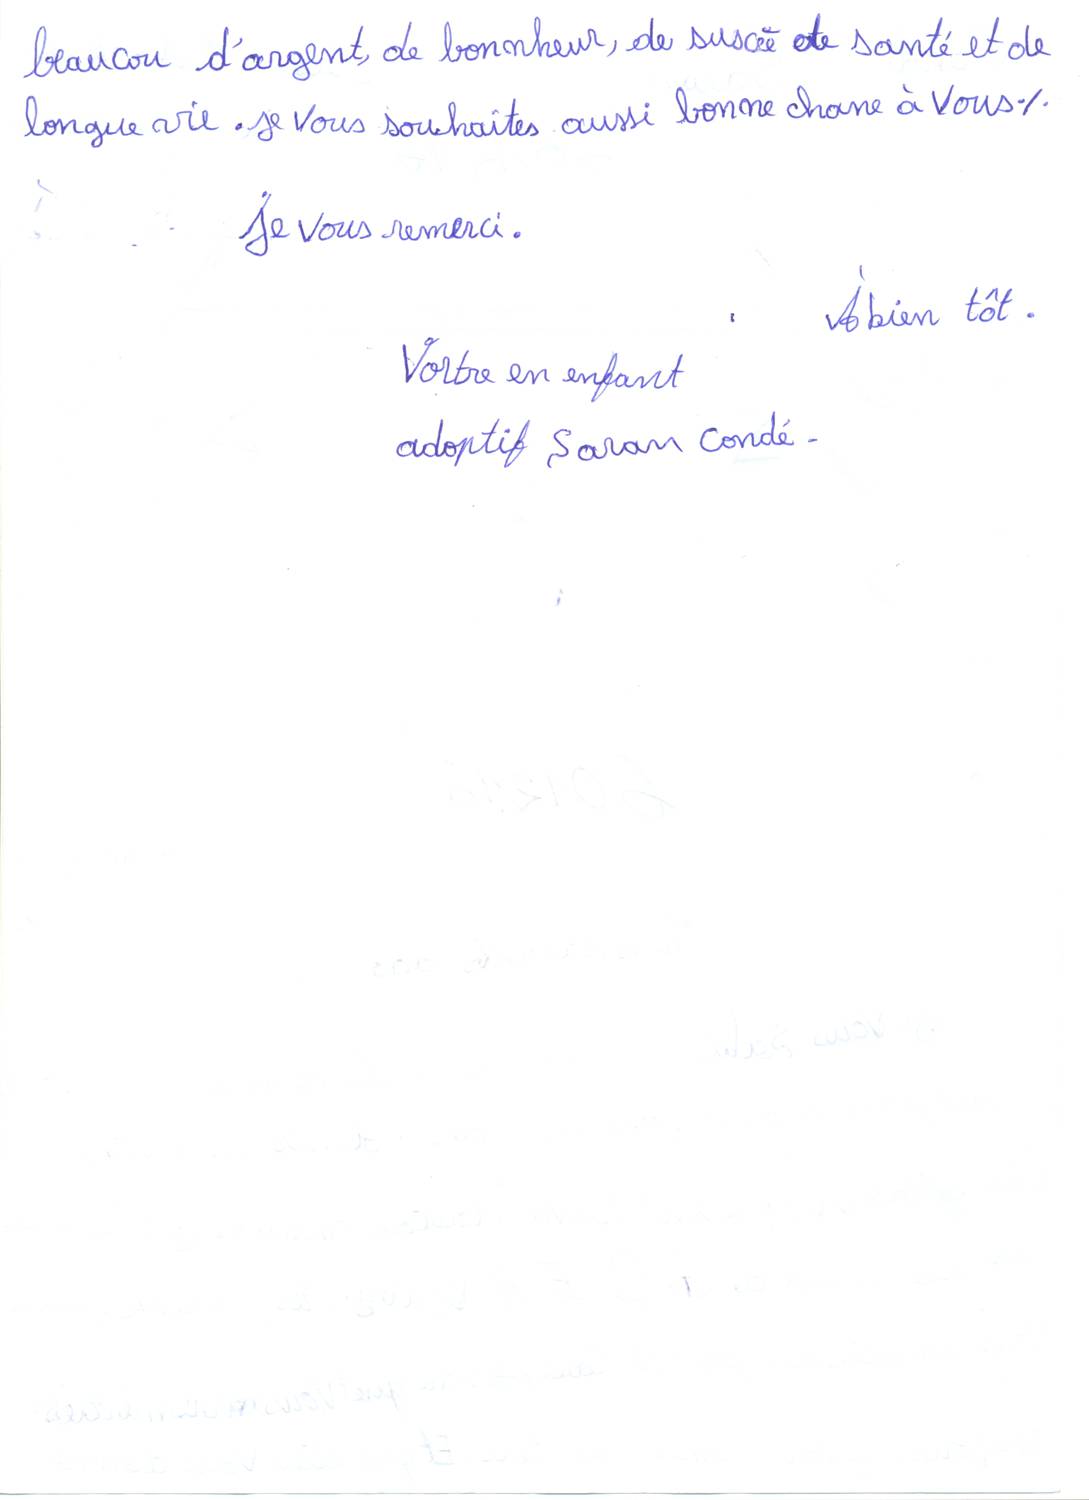 beaucou d'argent, de bonnheur, de suscée de santé et de
longue vie. je vous souhaites aussi bonne chane à vous./.
je vous remerci.
À bien tôt.
Vortre en enfant
adoptif Saran condé -